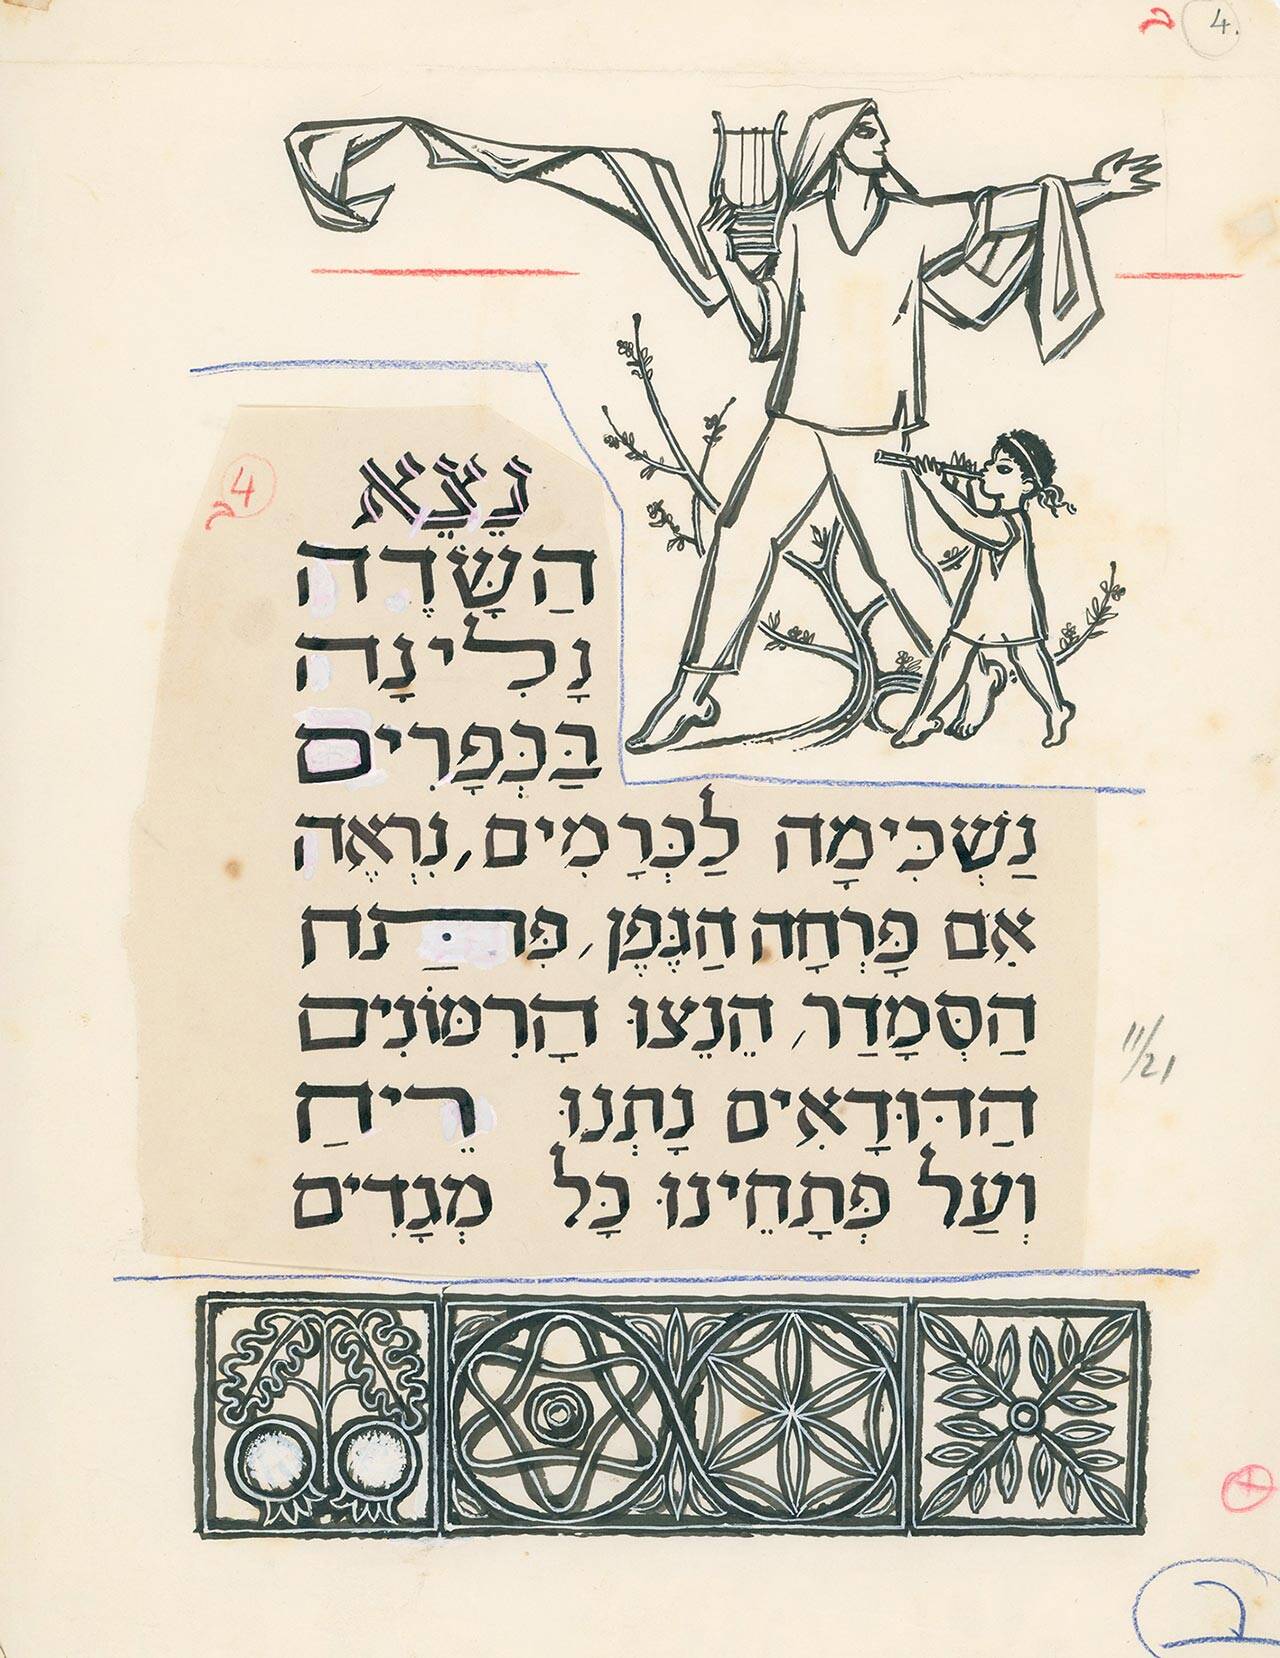 ב 4.
4
ב
נֵצֵא
הַשָּׂדֶה
נָלִינָה
בַּכְּפָרִים
נַשְׁכִּימָה לַכְּרָמִים, נִרְאֶה
אִם פָּרְחָה הַגֶּפֶן, פִּתַּח
הַסְּמָדַר, הֵנֵצוּ הָרִמּוֹנִים
הַדּוּדָאִים נָתְנוּ רֵיחַ
וְעַל פְּתָחֵינוּ כָּל מְגָדִים
11/21
ב